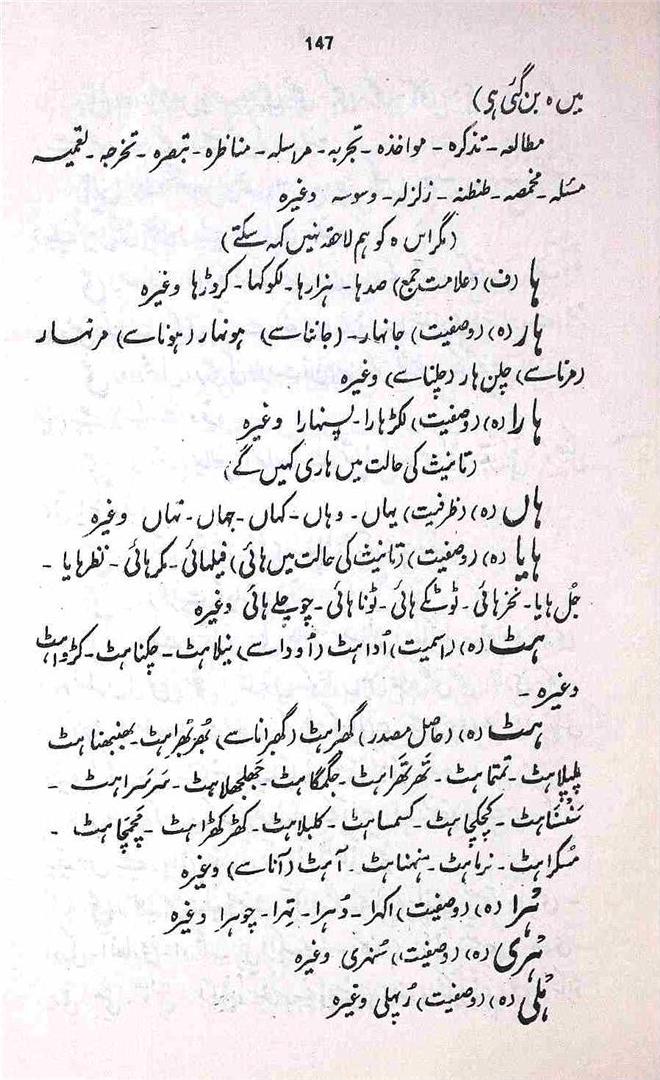 147
میں ہ بن گئی ہی)
مطالعہ ۔ تذکرہ ۔ مواخذہ ۔ تجربہ ۔ مراسلہ ۔ مناظرہ ۔ تبصرہ ۔ تخرجہ ۔ تعمیہ
مسٔلہ ۔ مخمصہ ۔ طنطنہ ۔ زلزلہ ۔ وسوسہ وغیرہ
(مگر اس ہ کو ہم لاحقہ نہیں کہہ سکتے)
ہا (ف) (علامت جمع) صدہا ۔ ہزارہا ۔ لکوکہا ۔ کروڑہا وغیرہ
ہار (ہ) (وصفیت) جانہار ۔ (جاننا سے) ہونہار (ہونا سے) مرنہار
(مرنا سے) چلن ہار (چلنا سے) وغیرہ
ہارا (ہ) (وصفیت) لکڑہارا ۔ پسنہارا وغیرہ
(تانیث کی حالت میں ہاری کہیں گے)
ہاں (ہ) (ظرفیت) یہاں ۔ وہاں ۔ کہاں ۔ جہاں ۔ تہاں وغیرہ
ہایا (ہ) (وصفیت) (تانیث کی حالت میں ہائی) فیلہائی ۔ مکرہائی ۔ نظرہایا ۔
جُل ہایا ۔ نخرہائی ۔ ٹوٹکے ہائی ۔ ٹونا ہائی ۔ چوچلے ہائی وغیرہ
ہٹ (ہ) (اسمیت) اُداہٹ (اُودا سے) نیلاہٹ ۔ چکناہٹ ۔ کڑواہٹ
وغیرہ ۔
ہٹ (ہ) (حاصل مصدر) گھبراہٹ (گھبرانا سے) تھرتھراہٹ ۔ بھنبھناہٹ
پلپلاہٹ ۔ تمتماہٹ ۔ تَھرتَھراہٹ ۔ جگمگاہٹ ۔ جَھلجھلاہٹ ۔ سَرسَراہٹ ۔
سَنْسَناہٹ ۔ کچکچاہٹ ۔ کسمساہٹ ۔ کلبلاہٹ ۔ کھڑکھڑاہٹ ۔ چَمچَماہٹ ۔
مسکراہٹ ۔ نرماہٹ ۔ ہنہناہٹ ۔ آہٹ (آنا سے) وغیرہ
ہُرا (ہ) (وصفیت) اکہرا ۔ دُہرا ۔ تِہرا ۔ چوہرا وغیرہ
ہُری (ہ) (وصفیت) سُنہری وغیرہ
ہُلی (ہ) (وصفیت) رُپہلی وغیرہ